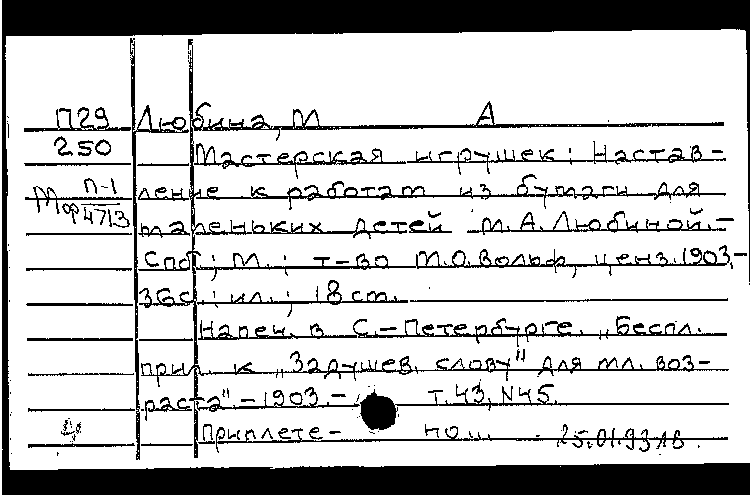 П29 Любина, М А
250 Мастерская игрушек: Настав-
М п-1 ление к работам из бумаги для
ф4713 маленьких детей М.А.Любиной.-
Спб; М.: т-во М.О.Вольф, ценз.1903.-
36с.: ил.; 18 cm.
Напеч. в С.-Петербурге. „Беспл.
прил. к „Задушев. слову" для мл. воз-
раста".-1903.- т.43, N45.
Приплете- но... 25.01.93